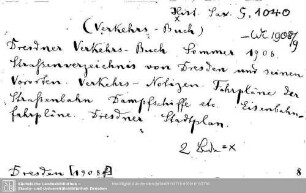 Hist. Sax. G. 1040
x
(Verkehrs-Buch)
- Wi. 1908/9
Dresdner Verkehrs-Buch Sommer 1906.
Straßenverzeichnis von Dresden und seinen
Vororten. Verkehrs-Notizen. Fahrpläne der
Straßenbahn Dampfschiffe etc. Eisenbahn-
fahrpläne. Dresdner Stadtplan.
2 Bde = x
Dresden [1908] 8